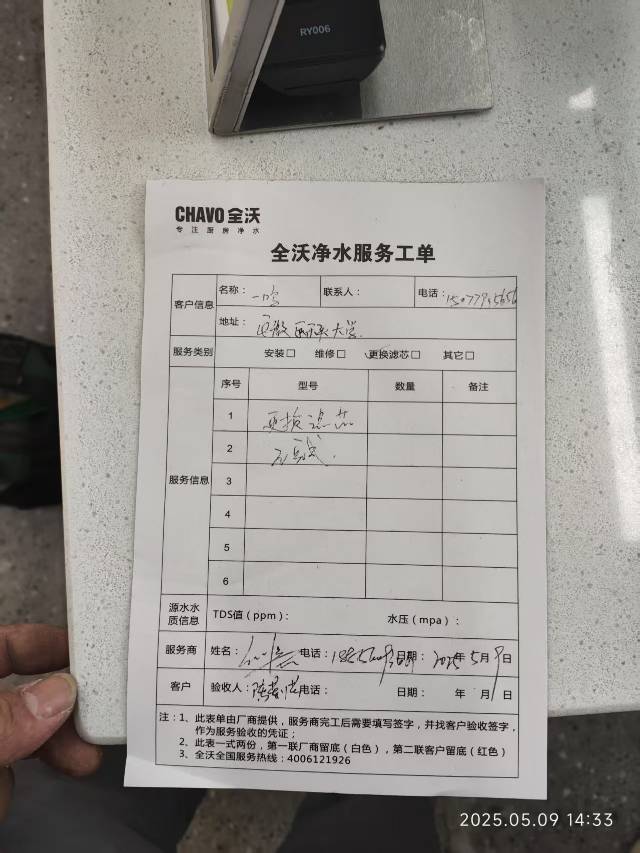 RY006
CHAVO 全沃
专注厨房净水
全沃净水服务工单
客户信息 名称：一鸣 联系人： 电话：
地址：安徽 大学
服务类别 安装□ 维修□ 更换滤芯□ 其它□
服务信息 序号 型号 数量 备注
1 更换滤芯
2
3
4
5
6
源水水质信息 TDS值（ppm）： 水压（mpa）：
服务商 姓名： 电话： 日期：2025年5月9日
客户 验收人： 电话： 日期： 年 月 日
注：1、此表单由厂商提供，服务商完工后需要填写签字，并找客户验收签字，
作为服务验收的凭证；
2、此表一式两份，第一联厂商留底（白色），第二联客户留底（红色）
3、全沃全国服务热线：4006121926
2025.05.09 14:33